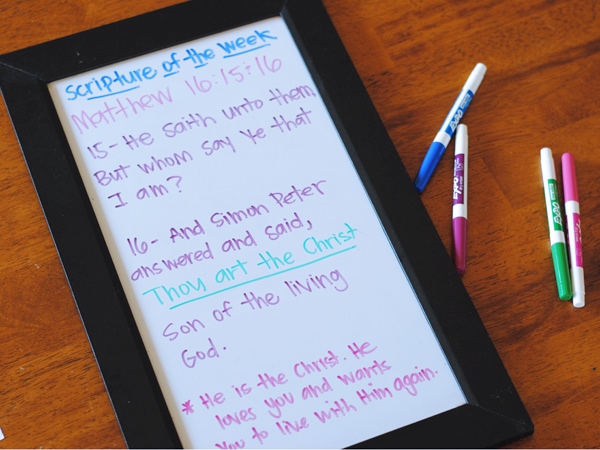 scripture of the week
Matthew 16:15:16
15- He saith unto them
But whom say Ye that
I am?
16- And Simon Peter
answered and said,
Thou art the Christ
Son of the living
God.
* He is the Christ. He
loves you and wants
you to live with Him again.
EXPO
EXPO
EXPO